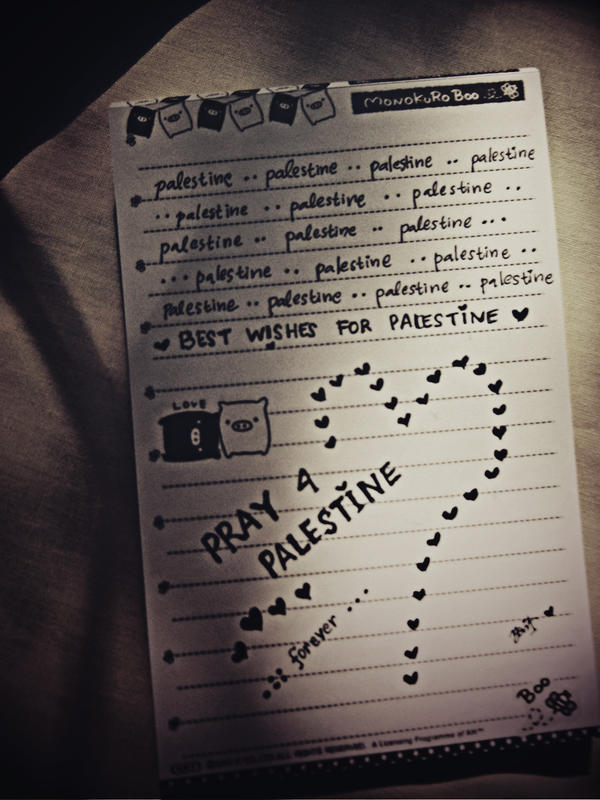 MONOKURO BOO
palestine .. palestine .. palestine .. palestine
.. palestine .. palestine .. palestine ..
palestine .. palestine .. palestine ...
... palestine .. palestine .. palestine ..
palestine .. palestine .. palestine .. palestine
♥ BEST WISHES FOR PALESTINE ♥
LOVE
PRAY 4
PALESTINE
forever ...
Boo
ALL RIGHTS RESERVED. A Licensing Programme of